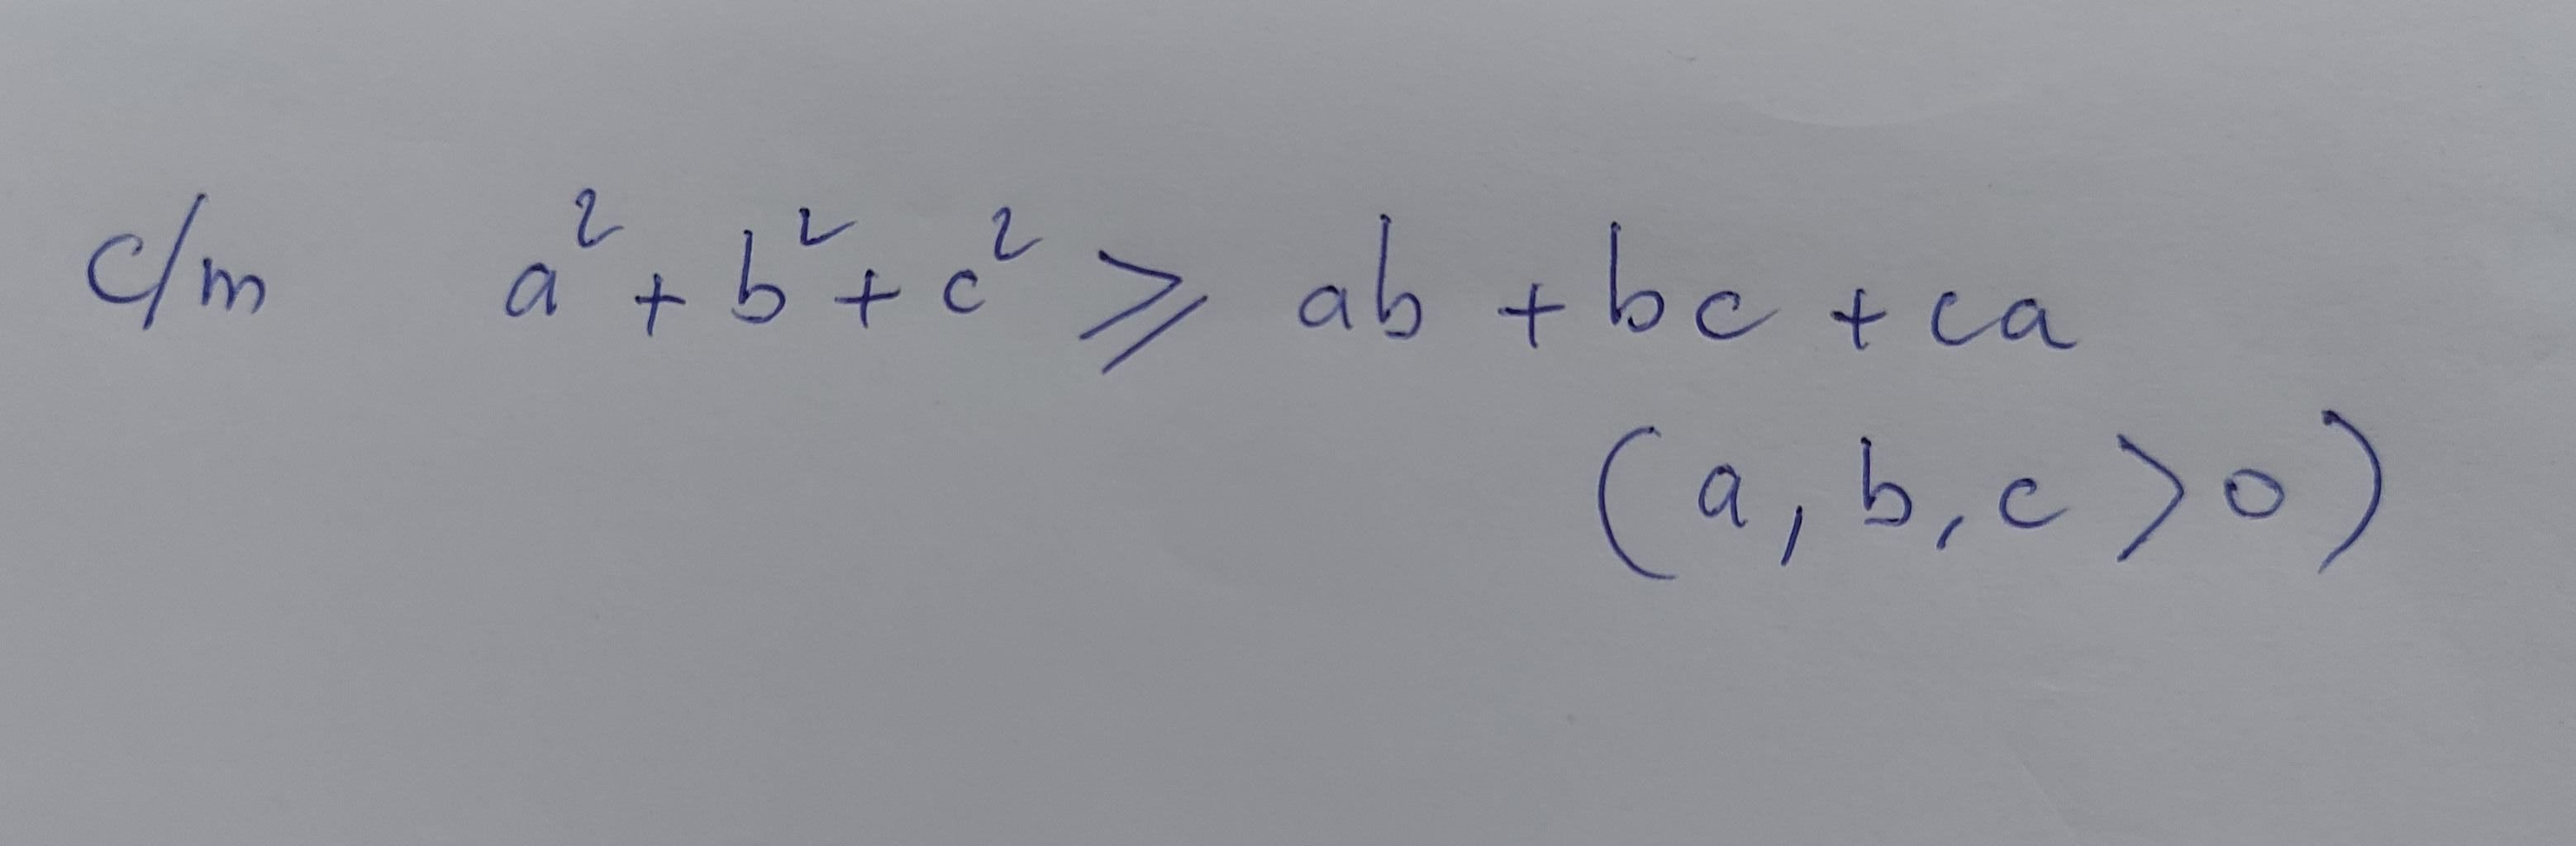 c/m a² + b² + c² ⩾ ab + bc + ca
(a, b, c > 0)